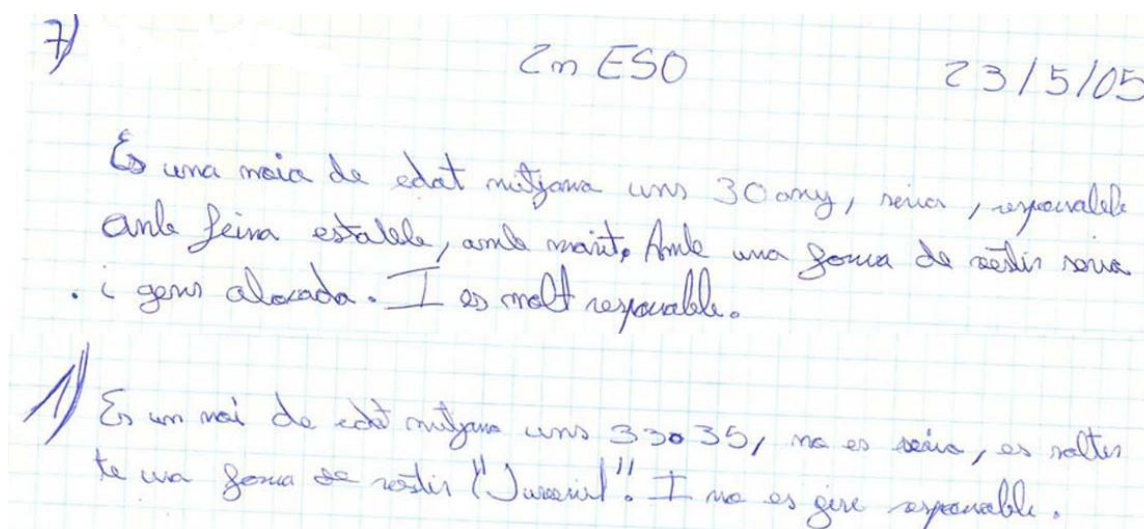 7)
2n ESO 23/5/05
Es una noia de edat mitjana uns 30 any, seria, responsable
amb feina estable, amb marit. Amb una forma de vestir seria
i gens alocada. I es molt responsable.
1) Es un noi de edat mitjana uns 33o 35, no es seria, es solter
te una forma de vestir "Juvenil". I no es gire responsable.